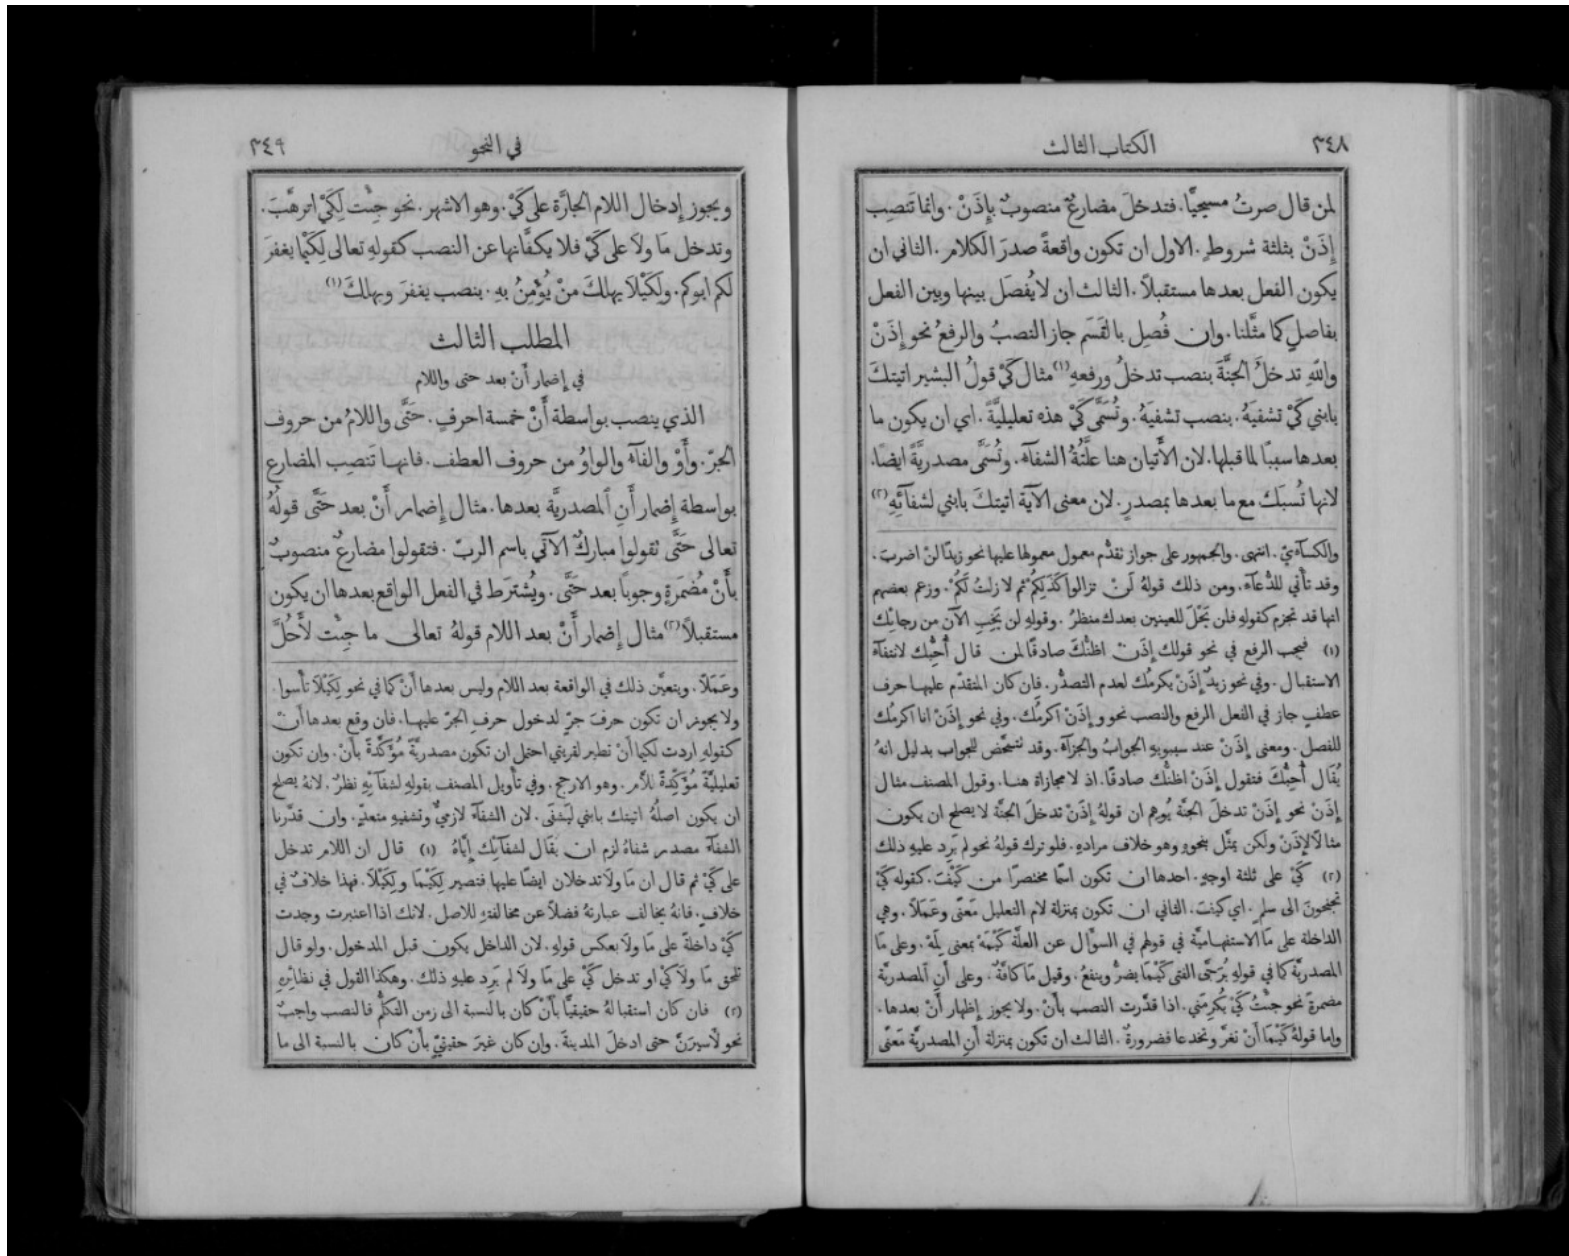 ٣٤٨
الكتاب الثالث
لمن قال صرتُ مسيحيًّا. فتدخلَ مضارعٌ منصوبٌ بإِذَنْ. وانما تَنصِب
إِذَنْ بثلثة شروطٍ. الاول ان تكون واقعةً صدرَ الكلام. الثاني ان
يكون الفعل بعدها مستقبلاً. الثالث ان لا يُفصَل بينها وبين الفعل
بفاصلٍ كما مثَّلنا. وان فُصِل بالقَسَم جاز النصبُ والرفعُ نحو إِذَنْ
واللهِ تدخلُ الجنَّةَ بنصب تدخلُ ورفعهِ (١) مثال كَيْ قولُ البشير اتيتكَ
يا بني كَيْ تشفيَهُ. بنصب تشفيَهُ. وتُسمَّى كَيْ هذه تعليليَّةً. اي ان يكون ما
بعدها سببًا لما قبلها. لان الأتيان هنا علَّتُهُ الشفآء. وتُسمَّى مصدريَّةً ايضًا.
لانها تُسبَك مع ما بعدها بمصدرٍ. لان معنى الآية اتيتكَ بابني لشفآئِهِ (٢)
والكسآءيّ. انتهى. والجمهور على جواز تقدُّم معمول معمولها عليها نحو زيدًا لنْ اضربَ.
وقد تأتي للدُّعآء. ومن ذلك قولهُ لَنْ تزالوا كذَلِكمْ ثم لا زلتُ لكُمْ. وزعم بعضهم
انها قد تجزم كقولهِ فلن يَحْلَ للعينين بعدك منظرُ. وقولهِ لن يَخِبِ الآنَ من رجائِك
(١) فيجب الرفع في نحو قولك إِذَنْ اظنُّكَ صادقًا لمن قال أُحِبُّك لانتفآء
الاستقبال. وفي نحو زيدٌ إِذَنْ يكرمُك لعدم التصدُّر. فان كان المتقدّم عليها حرف
عطفٍ جاز في الفعل الرفع والنصب نحو وإِذَنْ اكرمُك. وفي نحو إِذَنْ انا اكرمُك
للفصل. ومعنى إِذَنْ عند سيبويهِ الجوابُ والجزآء. وقد تتمحَّض للجواب بدليل انهُ
يُقَال أُحِبُّكَ فتقول إِذَنْ اظنُّك صادقًا. اذ لا مجازاة هنا. وقول المصنف مثال
إِذَنْ نحو إِذَنْ تدخلَ الجنَّةَ يُوهِم ان قولهُ إِذَنْ تدخلَ الجنَّةَ لا يصلح ان يكون
مثالاً لإِذَنْ ولكن يمثَّل بنحوهِ وهو خلاف مرادهِ. فلو ترك قولهُ نحو لم يَرِد عليهِ ذلك
(٢) كَيْ على ثلثة اوجهٍ. احدها ان تكون اسمًا مختصرًا من كَيْفَ. كقوله كَيْ
تجنحونَ الى سلمٍ. اي كيفَ. الثاني ان تكون بمنزلة لام التعليل مَعنًى وعَمَلاً. وهي
الداخلة على مَا الاستفهاميَّة في قولهم في السؤَال عن العلَّة كَيْمَهْ بمعنى لِمَهْ. وعلى مَا
المصدريَّة كما في قولهِ يُرَجَّى الفتى كَيْمَا يضرُّ وينفعُ. وقيل مَا كافَّةٌ. وعلى أَنِ المصدريَّة
مضمرةً نحو جئتُ كَيْ يُكرِمَني. اذا قدَّرت النصب بأَنْ. ولا يجوز إِظهار أَنْ بعدها.
واما قولهُ كَيْمَا أَنْ تَغرَّ وتخدعا فضرورةٌ. الثالث ان تكون بمنزلة أَنِ المصدريَّة مَعنًى
في النحو
٣٤٩
ويجوز إِدخال اللام الجارَّة على كَيْ. وهو الاشهر. نحو جِئْت لِكَيْ اترهَّبَ.
وتدخل مَا ولَا على كَيْ فلا يكفَّانها عن النصب كقولهِ تعالى لِكَيْما يغفرَ
لكم ابوكم. ولِكَيْلَا يهلكَ مَنْ يُؤْمِنُ بهِ. بنصب يغفرَ ويهلكَ (١)
المطلب الثالث
في إِضمار أَنْ بعد حتى واللام
الذي ينصب بواسطة أَنْ خمسة احرفٍ. حَتَّى واللامُ من حروف
الجرّ. وأَوْ والفآء والواوُ من حروف العطف. فانها تَنصِب المضارع
بواسطة إِضمار أَنِ المصدريَّة بعدها. مثال إِضمار أَنْ بعد حَتَّى قولُهُ
تعالى حَتَّى تقولوا مباركٌ الآتي باسم الربّ. فتقولوا مضارعٌ منصوبٌ
بأَنْ مُضمَرةٍ وجوبًا بعد حَتَّى. ويُشترَط في الفعل الواقع بعدها ان يكون
مستقبلاً (٢) مثال إِضمار أَنْ بعد اللام قولهُ تعالى ما جِئْت لأَحُلَّ
وعَمَلاً. ويتعيَّن ذلك في الواقعة بعد اللام وليس بعدها أَنْ كما في نحو لِكَيْلَا تأسوا.
ولا يجوز ان تكون حرفَ جرٍّ لدخول حرف الجرّ عليها. فان وقع بعدها أَنْ
كقولهِ اردت لكيما أَنْ تطير لقربتي احتمل ان تكون مصدريَّةً مُؤَكَّدةً بأَنْ. وان تكون
تعليليَّةً مُؤَكِّدةً للَّام. وهو الارجح. وفي تأويل المصنف بقولهِ لشفآئِهِ نظرٌ. لانهُ يصلح
ان يكون اصلُهُ اتيتك بابني ليَشفَى. لان الشفآء لازميٌّ وتشفيهِ متعدٍّ. وان قدَّرنا
الشفآء مصدر شفاهُ لزم ان يقَال لشفآئِك إِيَّاهُ (١) قال ان اللام تدخل
على كَيْ ثم قال ان مَا ولَا تدخلان ايضًا عليها فتصير لِكَيْمَا ولِكَيْلَا. فهذا خلافٌ في
خلافٍ. فانهُ يخالف عبارتهُ فضلاً عن مخالفتهِ للاصل. لانك اذا اعتبرت وجدت
كَيْ داخلةً على مَا ولَا بعكس قولهِ. لان الداخل يكون قبل المدخول. ولو قال
تلحق مَا ولَا كَيْ او تدخل كَيْ على مَا ولَا لم يَرِد عليهِ ذلك. وهكذا القول في نظائِرهِ
(٢) فان كان استقبالهُ حقيقيًّا بأَنْ كان بالنسبة الى زمن التكلُّم فالنصب واجبٌ
نحو لأَسيرَنَّ حتى ادخلَ المدينةَ. وان كان غيرَ حقيقيٍّ بأَنْ كان بالنسبة الى ما